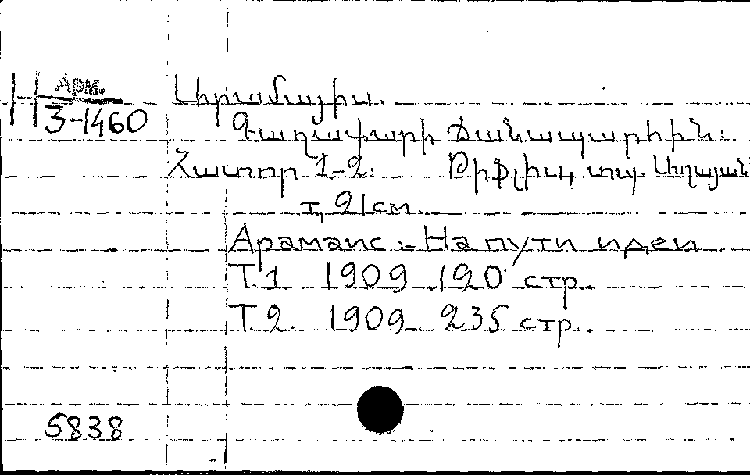 Арм. Արամայիս.
H 3-1460 Գաղափարի ճանապարհին:
Հատոր 1-2: Թիֆլիս, տպ.
т, 21 см.
Арамаис - На пути идеи
Т.1 1909 190 стр.
Т.2. 1909 235 стр.
5838